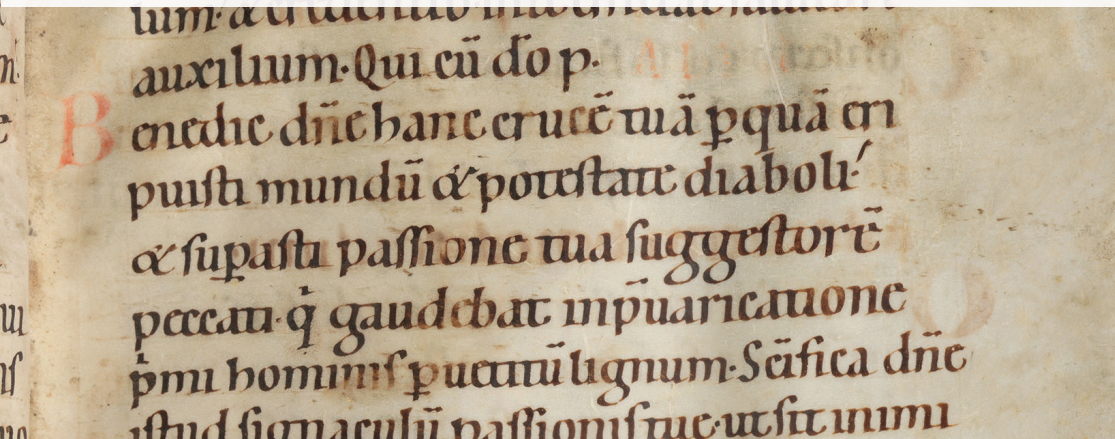 auxilium. Qui cū do p.
Benedic dn̄e hanc crucē tuā p̱ quā eri
puisti mundū & potestate diaboli.
& sup̱asti passione tua suggestorē
peccati. q̇ gaudebat in p̄uaricatione
ṗmi hominis p̱ uetitū lignum. Sc̄ifica dn̄e
istud signaculū passionis tue. ut sit inimi